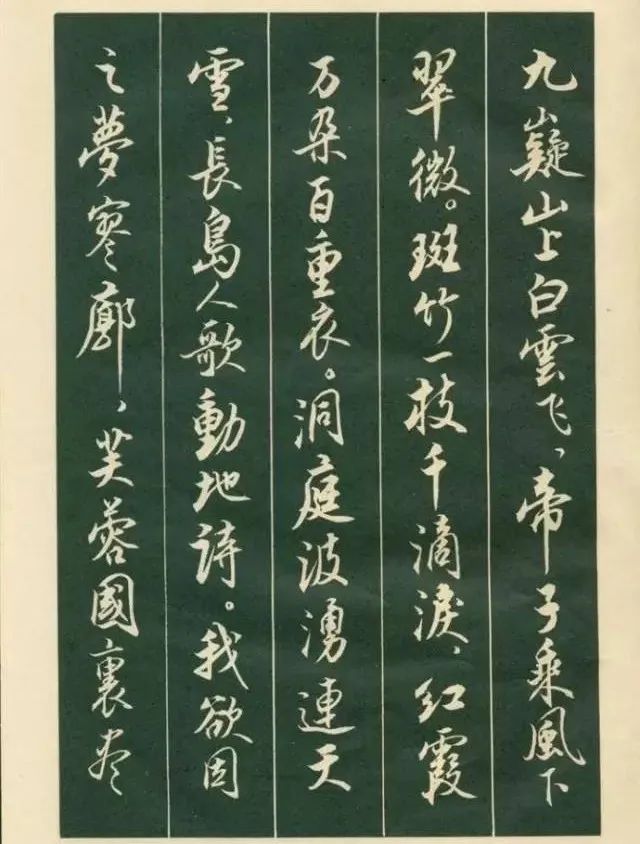 九嶷山上白雲飞、帝子乘風下
翠微。斑竹一枝千滴淚、红霞
万朵百重衣。洞庭波湧連天
雪、長島人歌動地詩。我欲因
之夢寥廓、芙蓉國裏尽